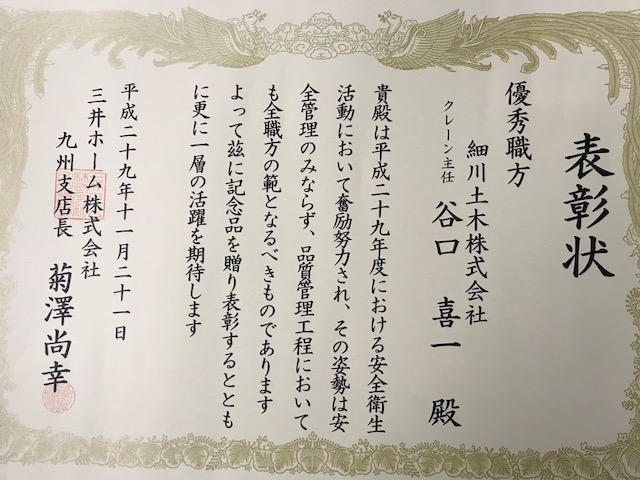 表彰状
優秀職方
細川土木株式会社
クレーン主任 谷口 喜一 殿
貴殿は平成二十九年度における安全衛生
活動において奮励努力され、その姿勢は安
全管理のみならず、品質管理工程において
も全職方の範となるべきものであります
よって茲に記念品を贈り表彰するととも
に更に一層の活躍を期待します
平成二十九年十一月二十一日
三井ホーム株式会社
九州支店長 菊澤尚幸